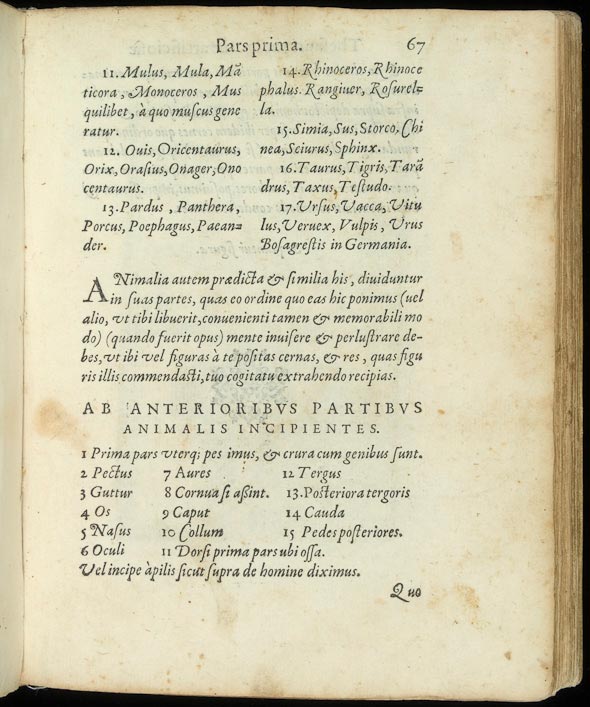 Pars prima. 67
11. Mulus, Mula, Mã
ticora, Monoceros, Mus
quilibet, à quo muscus gene
ratur.
12. Ouis, Oricentaurus,
Orix, Orasius, Onager, Ono
centaurus.
13. Pardus, Panthera,
Porcus, Poephagus, Paean=
der.
14. Rhinoceros, Rhinoce
phalus. Rangiuer, Rosurel=
la.
15. Simia, Sus, Storco, Chi
nea, Sciurus, Sphinx.
16. Taurus, Tigris, Tarã
drus, Taxus, Testudo.
17. Vrsus, Vacca, Vitu
lus, Veruex, Vulpis, Vrus
Bosagrestis in Germania.
ANimalia autem prædicta & similia his, diuiduntur
in suas partes, quas eo ordine quo eas hic ponimus (uel
alio, vt tibi libuerit, conuenienti tamen & memorabili mo
do) (quando fuerit opus) mente inuisere & perlustrare de-
bes, vt ibi vel figuras à te positas cernas, & res, quas figu
ris illis commendasti, tuo cogitatu extrahendo recipias.
AB ANTERIORIBVS PARTIBVS
ANIMALIS INCIPIENTES.
1 Prima pars vterq; pes imus, & crura cum genibus sunt.
2 Pectus 7 Aures 12 Tergus
3 Guttur 8 Cornua si aßint. 13. Posteriora tergoris
4 Os 9 Caput 14 Cauda
5 Nasus 10 Collum 15 Pedes posteriores.
6 Oculi 11 Dorsi prima pars ubi ossa.
Vel incipe àpilis sicut supra de homine diximus.
Quo